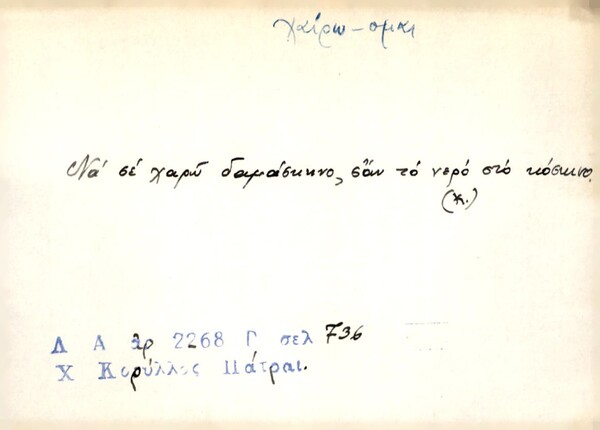 χαίρω - ομαι
Νά σέ χαρῶ δαμάσκηνο, σἄν τό νερό στό κόσκινο.
(κ.)
Λ Α ἀρ 2268 Γ σελ 736
Χ Κορύλλος Πάτραι.